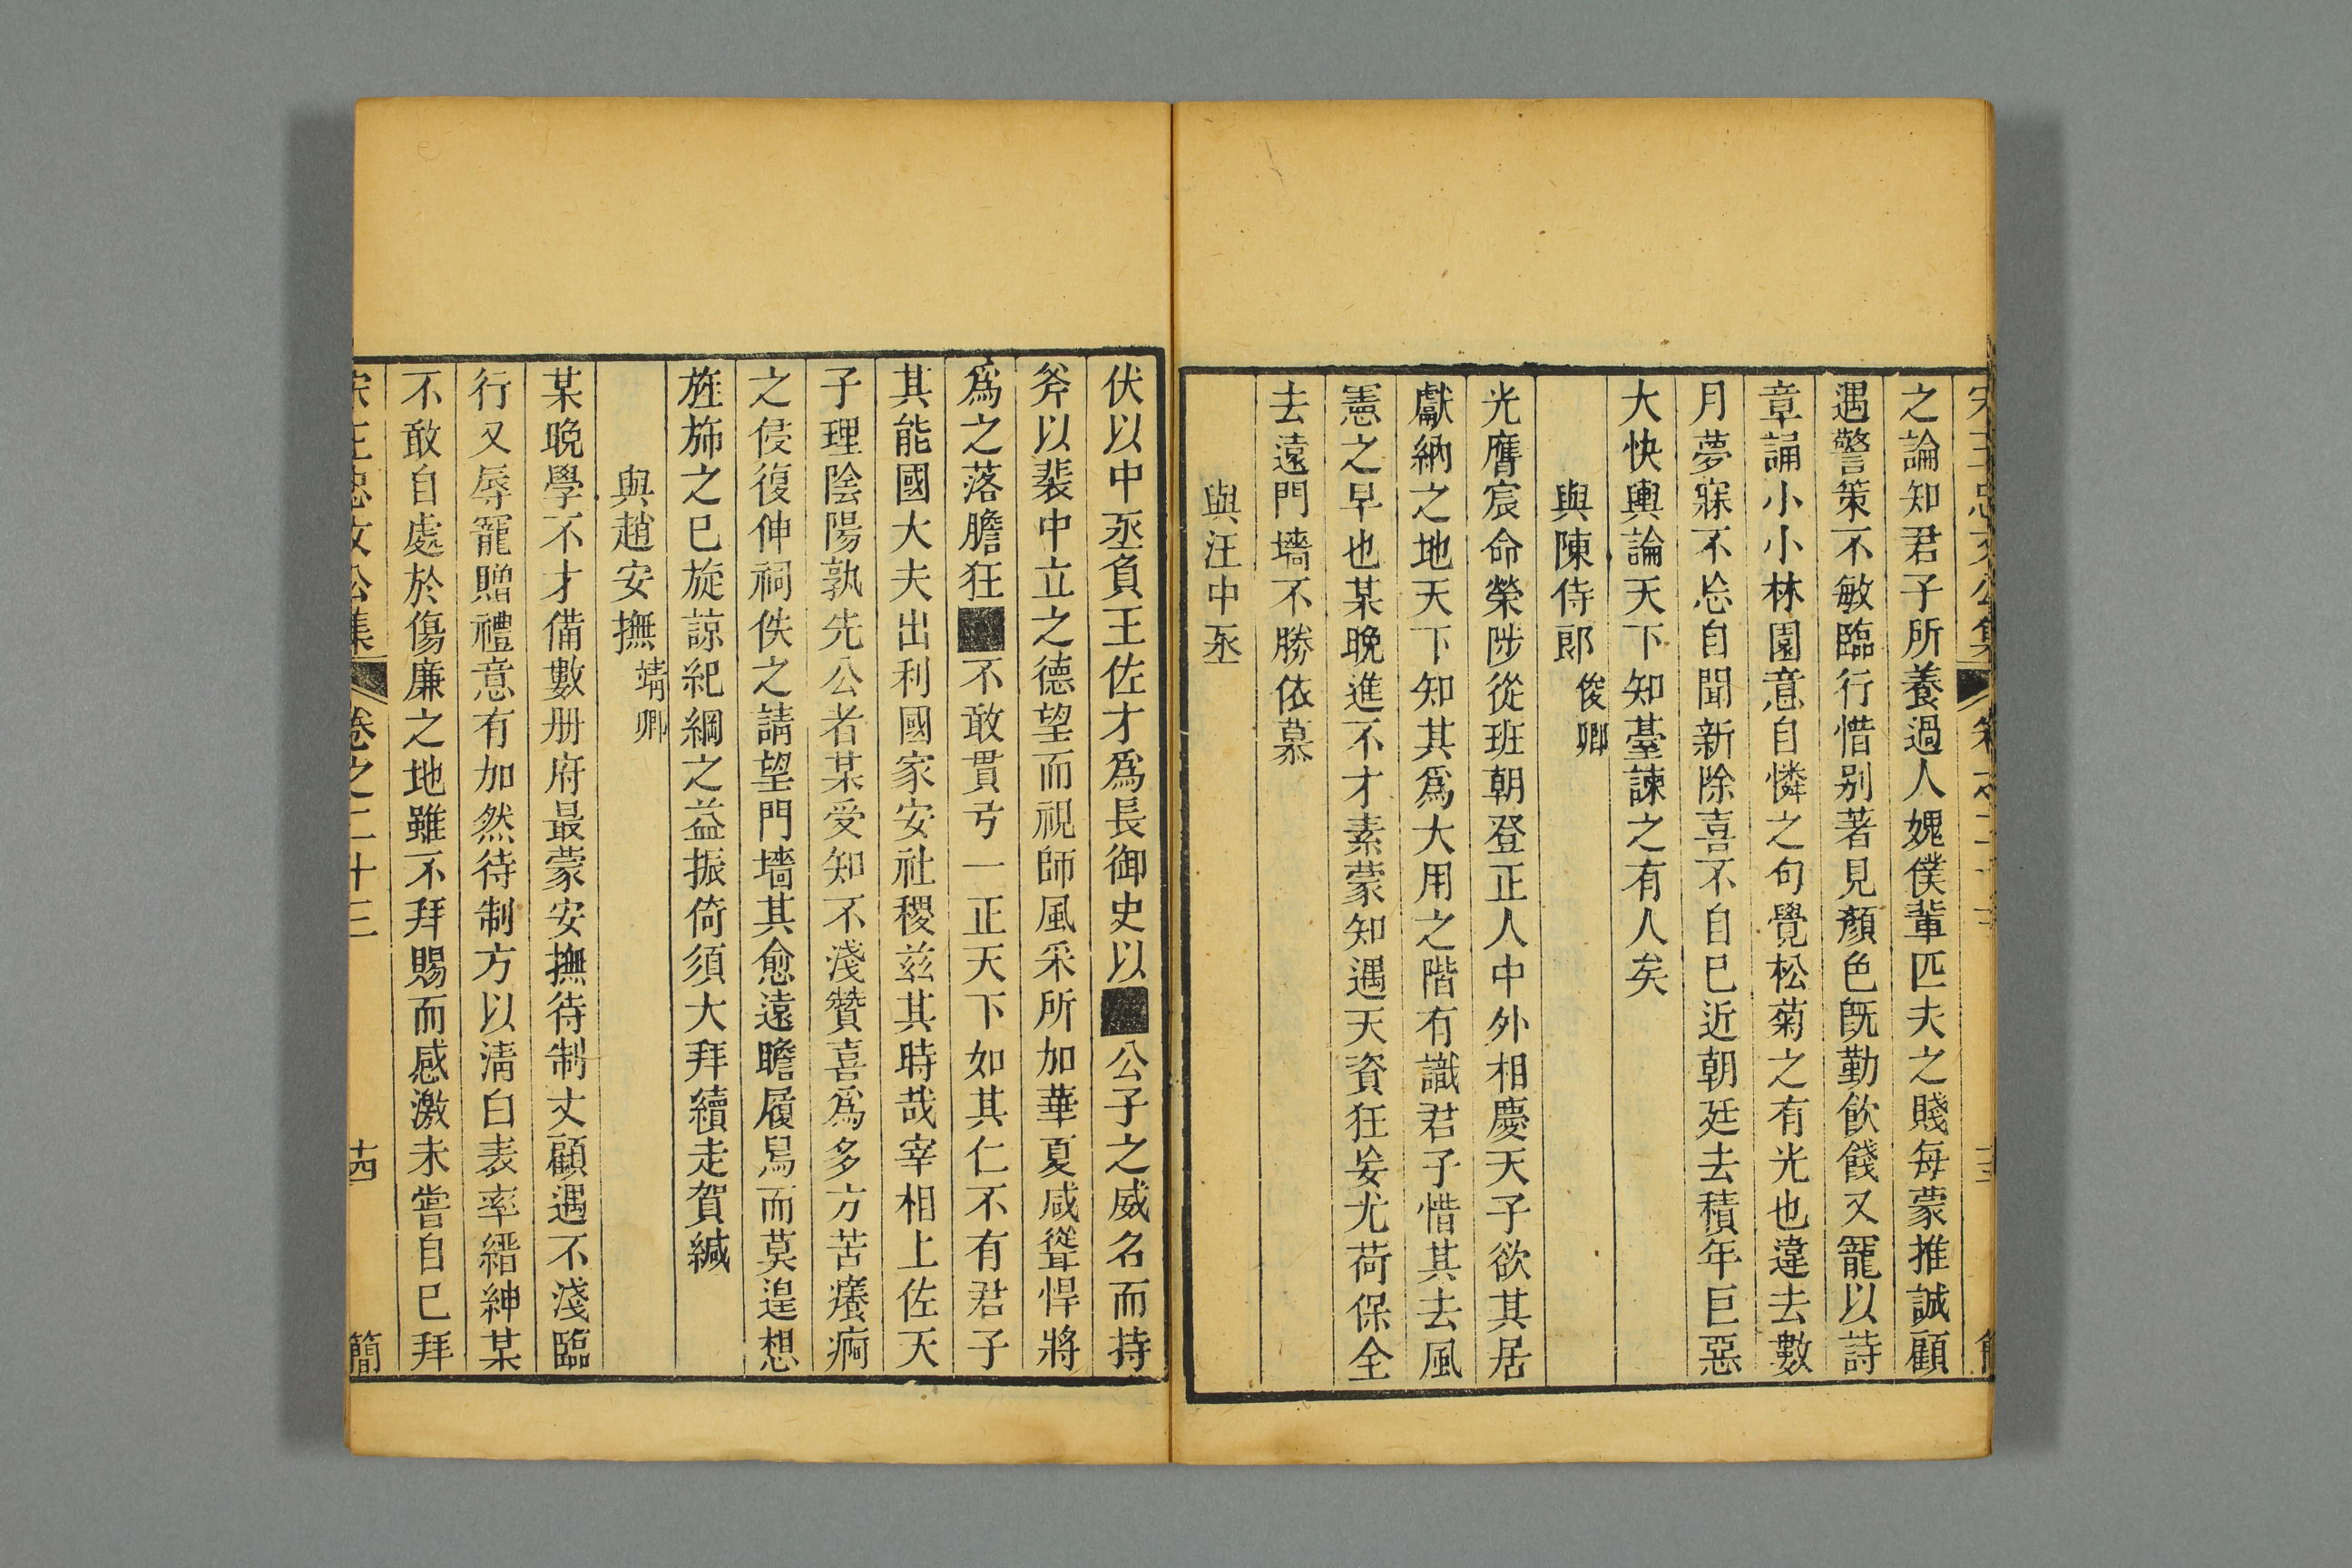 宋王忠文公集 卷之二十三 十三 簡
之論知君子所養過人媿僕輩匹夫之賤每蒙推誠顧
遇警策不敏臨行惜别著見顏色旣勤飮餞又寵以詩
章誦小小林園意自憐之句覺松菊之有光也違去數
月夢寐不忘自聞新除喜不自巳近朝廷去積年巨惡
大快輿論天下知臺諫之有人矣
與陳侍郎俊卿
光膺宸命榮陟從班朝登正人中外相慶天子欲其居
獻納之地天下知其爲大用之階有識君子惜其去風
憲之早也某晚進不才素蒙知遇天資狂妄尤荷保全
去遠門墻不勝依慕
與汪中丞
伏以中丞負王佐才爲長御史以■公子之威名而持
斧以裴中立之德望而視師風采所加華夏咸聳悍將
爲之落膽狂■不敢貫弓一正天下如其仁不有君子
其能國大夫出利國家安社稷兹其時哉宰相上佐天
子理陰陽孰先公者某受知不淺贊喜爲多方苦癢痾
之侵復伸祠佚之請望門墻其愈遠瞻履舄而莫遑想
旌斾之巳旋諒紀綱之益振倚須大拜續走賀緘
與趙安撫靖卿
某晚學不才備數册府最蒙安撫待制丈顧遇不淺臨
行又辱寵贈禮意有加然待制方以淸白表率縉紳某
不敢自處於傷廉之地雖不拜賜而感激未嘗自巳拜
宋王忠文公集 卷之二十三 十四 簡